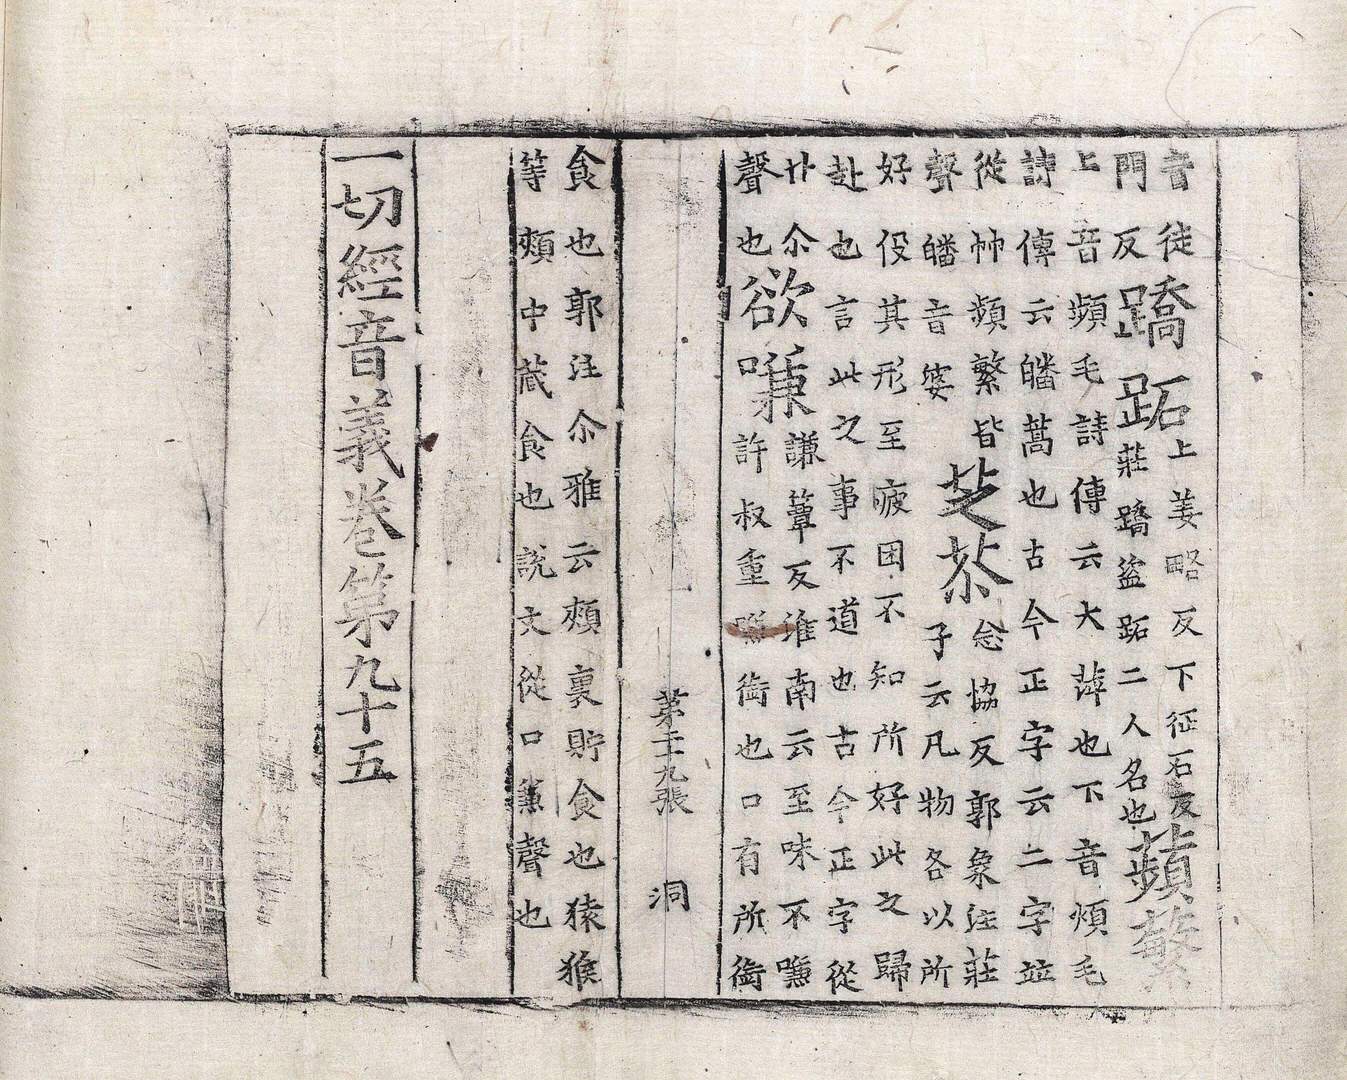 音徒
門反
蹻跖
上姜略反下征石反
莊蹻盜跖二人名也
蘋蘩
上音頻毛詩傳云大萍也下音煩毛
詩傳云皤蒿也古今正字云二字並
從艸頻繁皆
聲皤音婆
芝苶
念協反郭象注莊
子云凡物各以所
好伇其形至疲困不知所好此之歸
赴也言此之事不道也古今正字從
廾尒
聲也
欲嗛
謙簟反淮南云至味不嗛
許叔重嗛銜也口有所銜
第二十九張 洞
食也郭注尒雅云頰裏貯食也猿猴
等頰中藏食也說文從口兼聲也
一切經音義卷第九十五